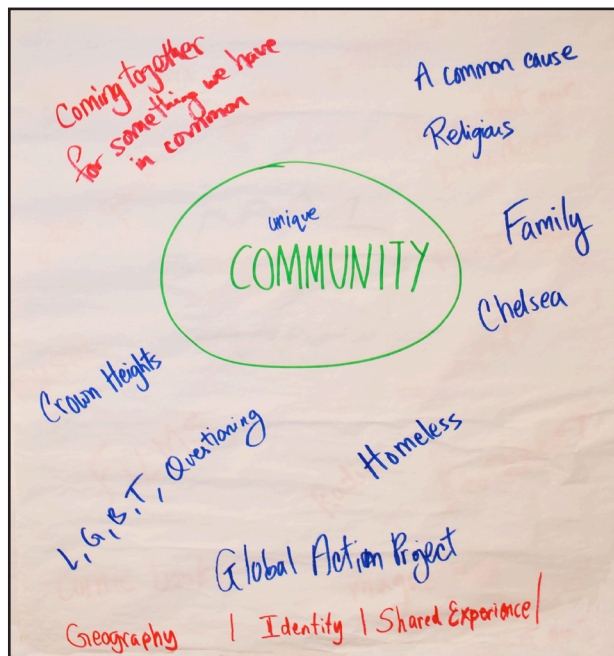 Coming together
for something we have
in common
A common cause
Religious
unique
COMMUNITY
Family
Chelsea
Crown Heights
L, G, B, T, Questioning
Homeless
Global Action Project
Geography | Identity | Shared Experience |